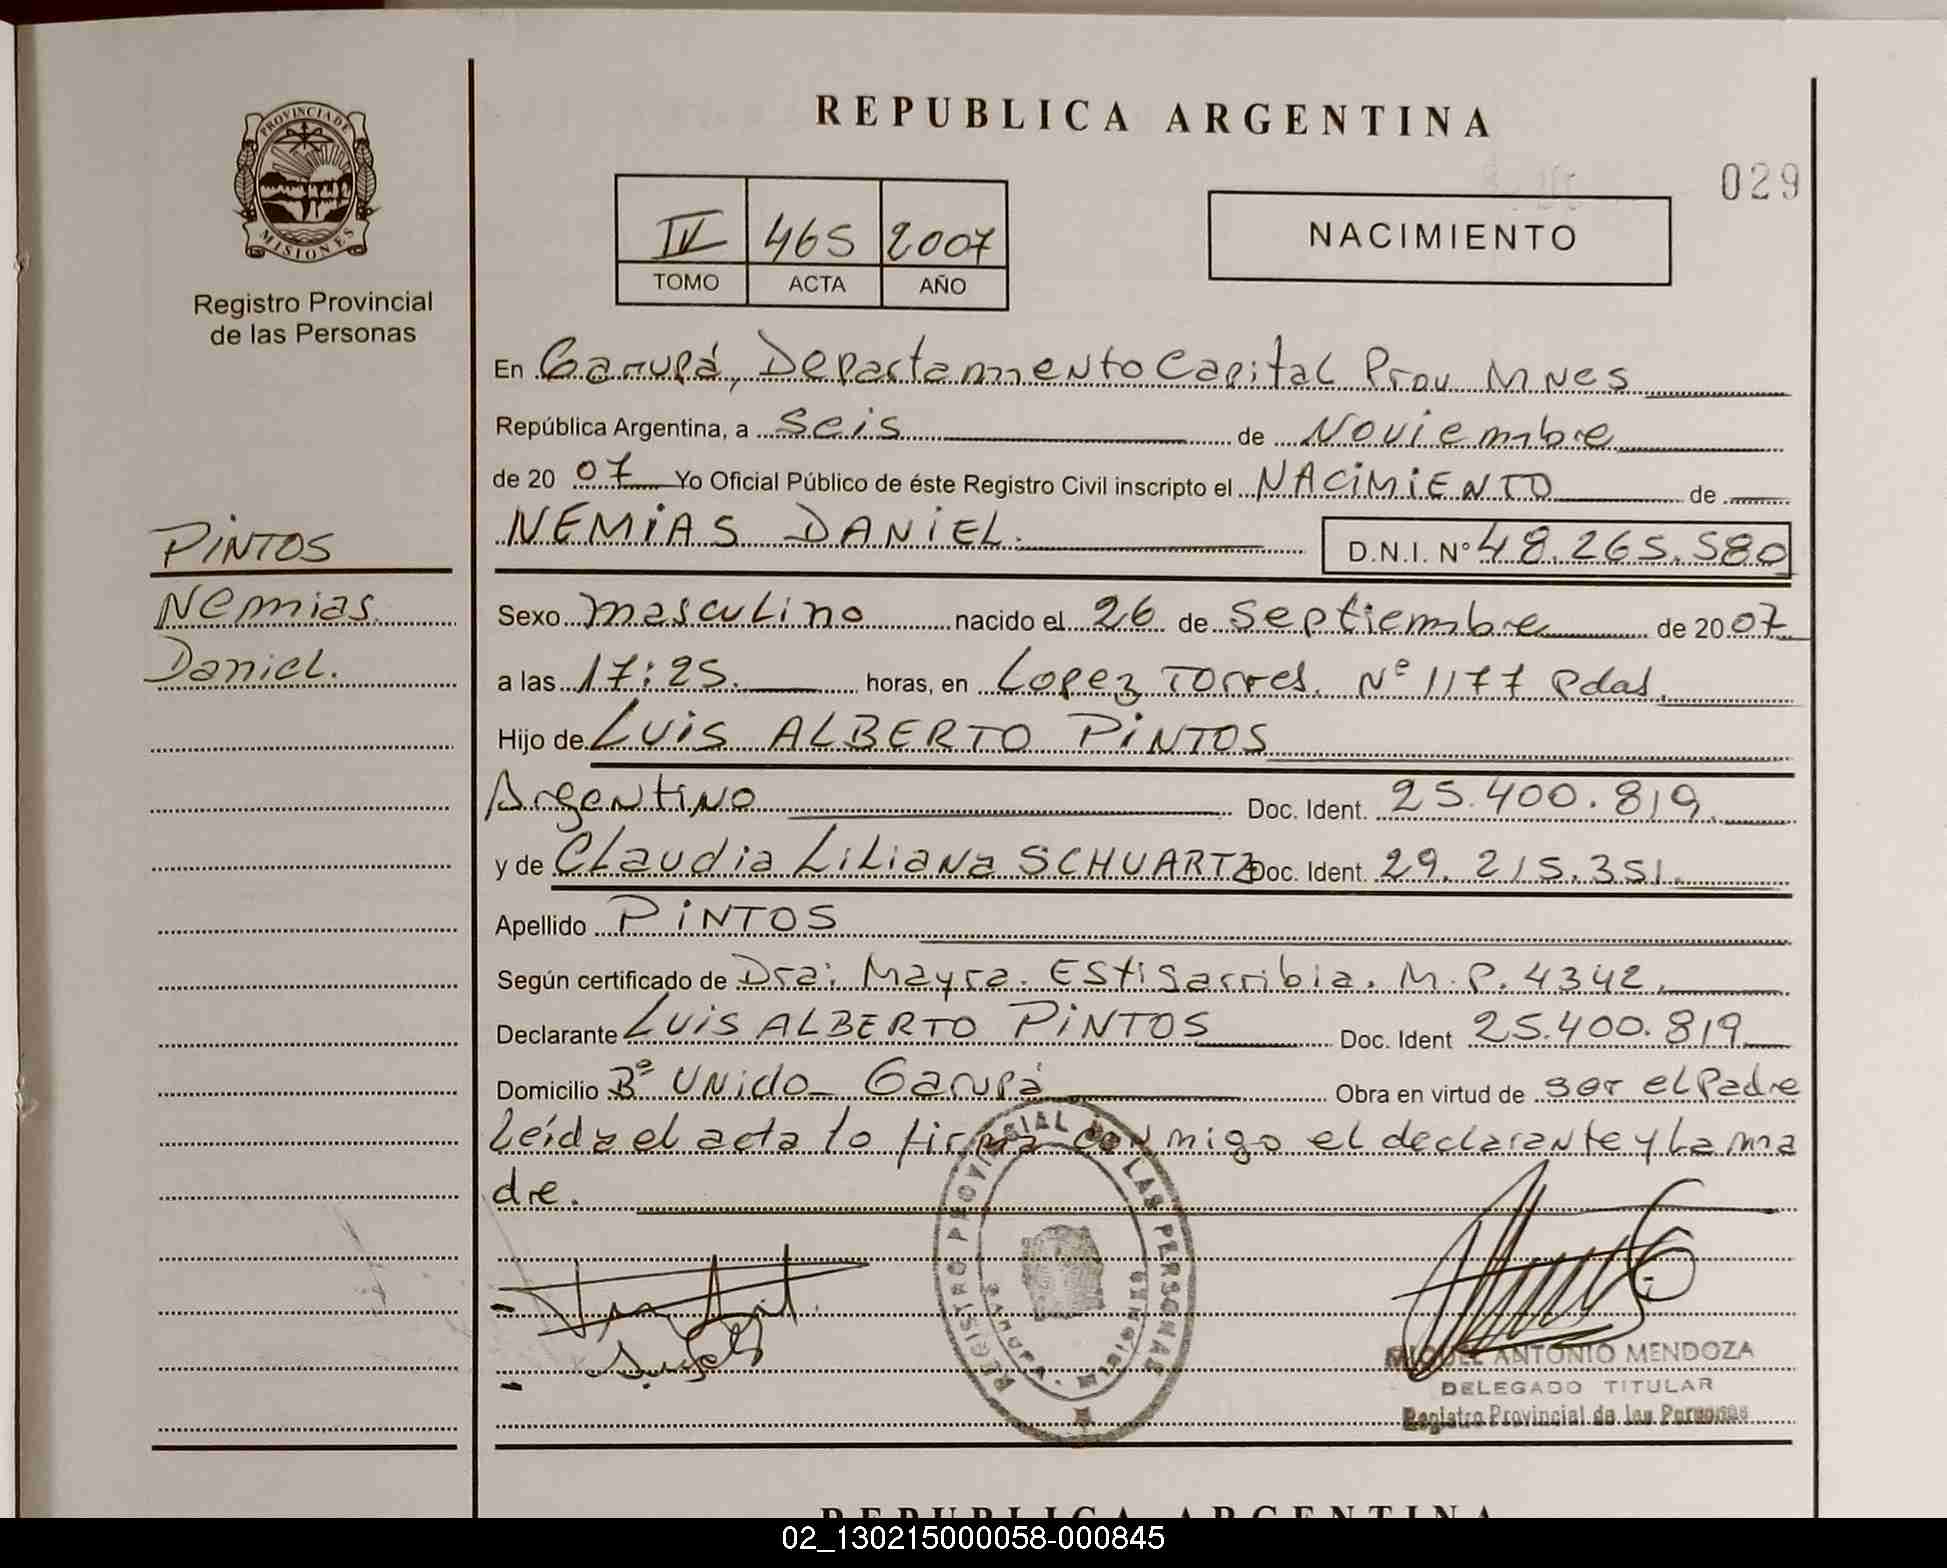 REPUBLICA ARGENTINA
029
PROVINCIA DE
MISIONES
Registro Provincial
de las Personas
IV 465 2007
TOMO ACTA AÑO
NACIMIENTO
En Garupá, Departamento Capital Prov Mnes
República Argentina, a seis de Noviembre
de 2007 Yo Oficial Público de éste Registro Civil inscripto el NACIMIENTO de
NEMIAS DANIEL. D.N.I. N° 48.265.580
PINTOS
Nemias
Daniel.
Sexo masculino nacido el 26 de Septiembre de 2007
a las 17:25. horas, en Lopez Torres. Nº 1177 Pdas.
Hijo de LUIS ALBERTO PINTOS
Argentino Doc. Ident. 25.400.819.
y de Claudia Liliana SCHUARTZ Doc. Ident. 29.215.351.
Apellido PINTOS
Según certificado de Dra: Mayra. Estigarribia. M.P. 4342.
Declarante LUIS ALBERTO PINTOS Doc. Ident 25.400.819
Domicilio Bº Unido - Garupá Obra en virtud de ser el Padre
Leída el acta lo firma conmigo el declarante y La ma
dre.
REGISTRO PROVINCIAL DE LAS PERSONAS
MIGUEL ANTONIO MENDOZA
DELEGADO TITULAR
Registro Provincial de las Personas
REPUBLICA ARGENTINA
02_130215000058-000845